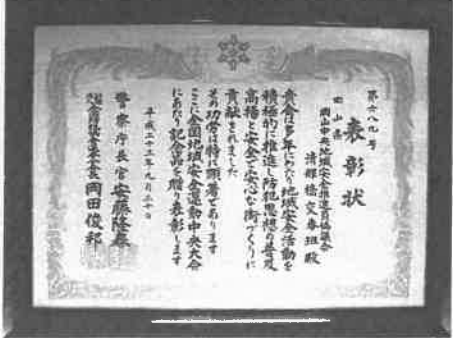 第六八九号
表彰状
岡山県
岡山中央地域安全推進員協議会
清輝橋交番班殿
貴会は多年にわたり地域安全活動を
積極的に推進し防犯思想の普及
高揚と安全で安心な街づくりに
貢献されました
その功労は特に顕著であります
ここに全国地域安全運動中央大会
にあたり記念品を贈り表彰します
平成二十三年九月三十日
警察庁長官安藤隆春
岡田俊邦